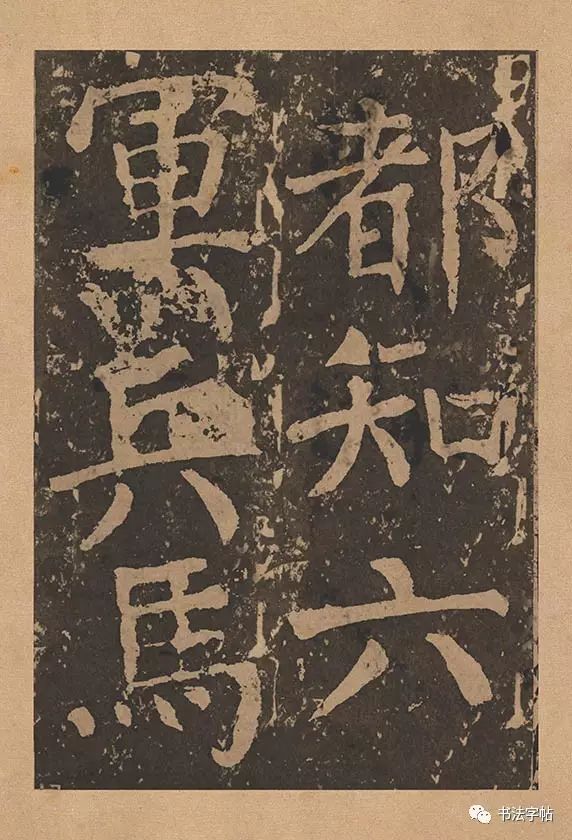 都知六
軍兵馬
书法字帖